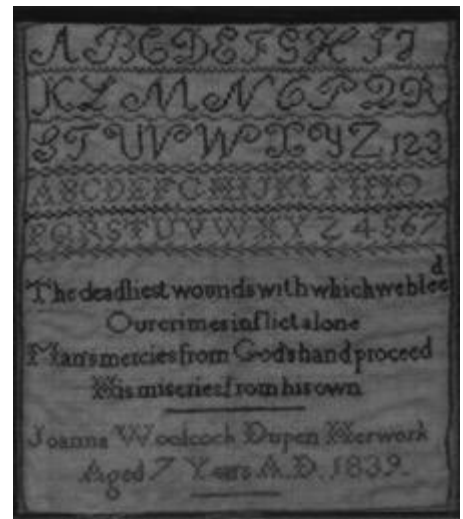 A B C D E F G H I J
K L M N O P Q R
S T U V W X Y Z 1 2 3
A B C D E F G H I J K L M N O
P Q R S T U V W X Y Z 4 5 6 7
The deadliest wounds with which we bleed
Our crimes inflict alone
Man's mercies from God's hand proceed
His miseries from his own
Joanna Woolcock Dupen Her work
Aged 7 Years A.D. 1839